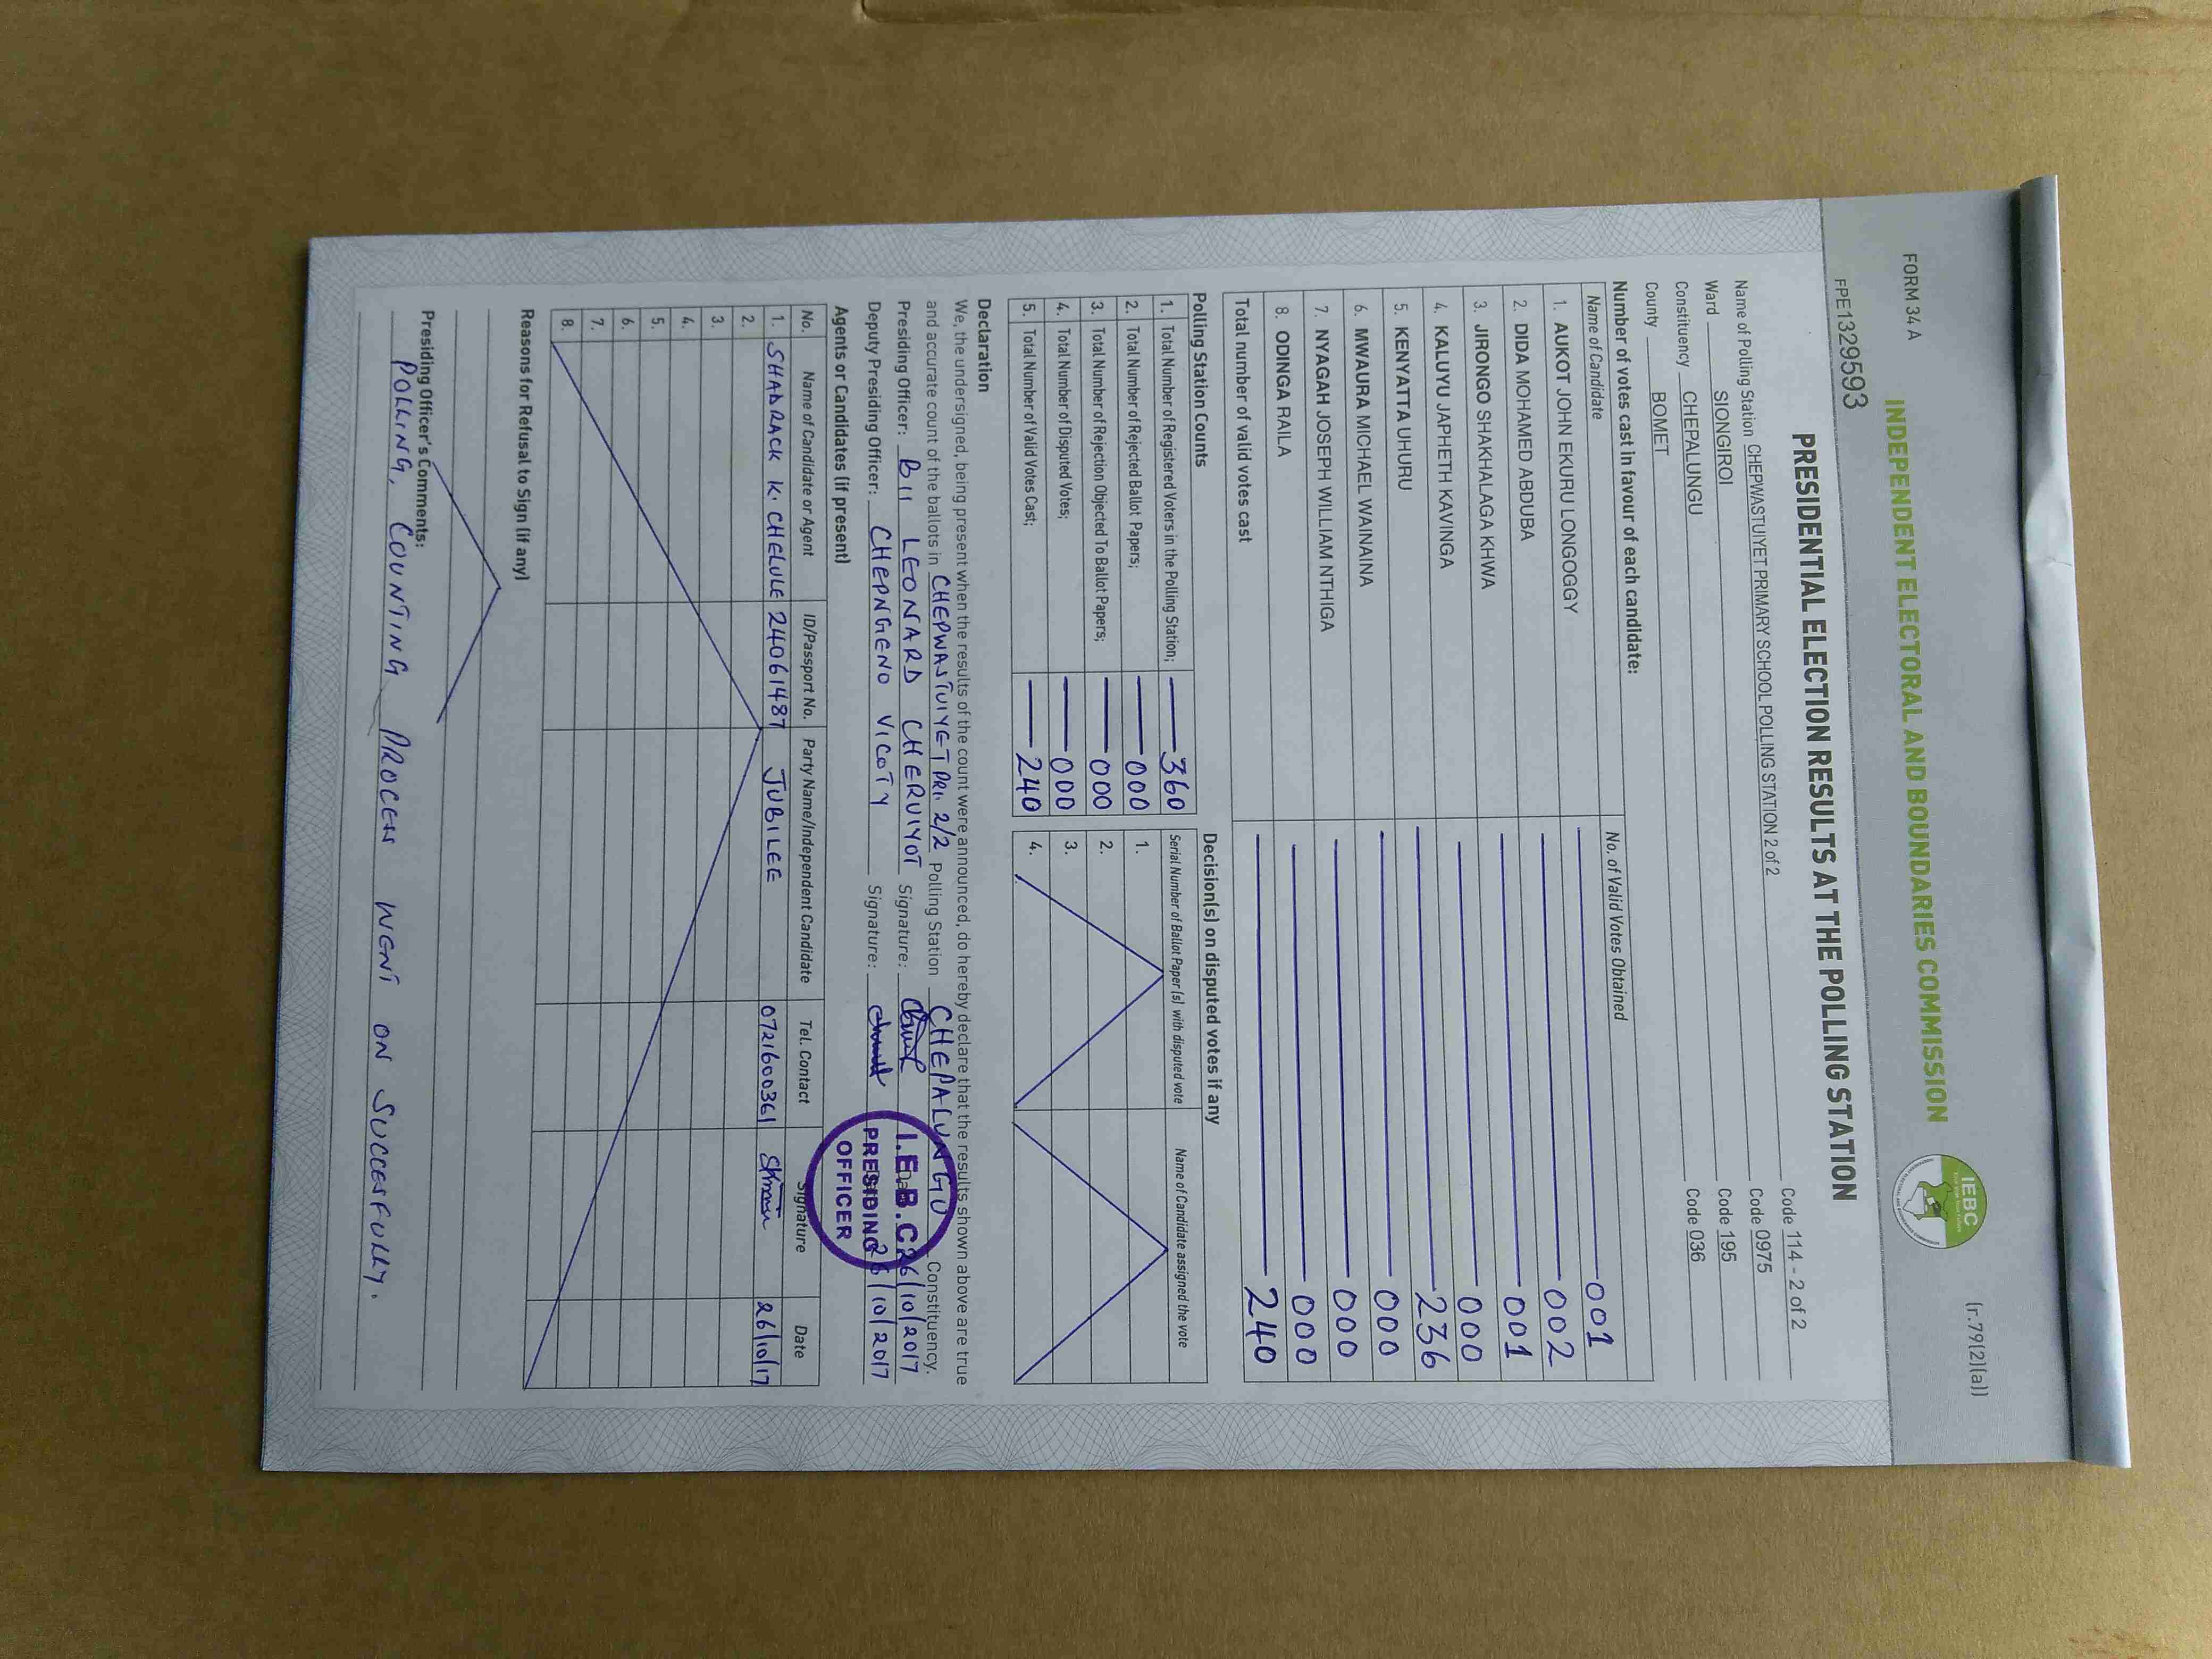 FORM 34 A
(r.79(2)(a))
INDEPENDENT ELECTORAL AND BOUNDARIES COMMISSION
IEBC
FPE1329593
PRESIDENTIAL ELECTION RESULTS AT THE POLLING STATION
Name of Polling Station CHEPWASTUIYET PRIMARY SCHOOL POLLING STATION 2 of 2 Code 114 - 2 of 2
Ward SIONGIROI Code 0975
Constituency CHEPALUNGU Code 195
County BOMET Code 036
Number of votes cast in favour of each candidate:
Name of Candidate No. of Valid Votes Obtained
1. AUKOT JOHN EKURU LONGOGGY 001
2. DIDA MOHAMED ABDUBA 002
3. JIRONGO SHAKHALAGA KHWA 001
4. KALUYU JAPHETH KAVINGA 000
5. KENYATTA UHURU 236
6. MWAURA MICHAEL WAINAINA 000
7. NYAGAH JOSEPH WILLIAM NTHIGA 000
8. ODINGA RAILA 000
Total number of valid votes cast 240
Polling Station Counts
1. Total Number of Registered Voters in the Polling Station; 360
2. Total Number of Rejected Ballot Papers; 000
3. Total Number of Rejection Objected To Ballot Papers; 000
4. Total Number of Disputed Votes; 000
5. Total Number of Valid Votes Cast; 240
Decision(s) on disputed votes if any
Serial Number of Ballot Paper(s) with disputed vote Name of Candidate assigned the vote
1.
2.
3.
4.
Declaration
We, the undersigned, being present when the results of the count were announced, do hereby declare that the results shown above are true
and accurate count of the ballots in CHEPWASTUIYET PRI. 2/2 Polling Station CHEPALUNGU Constituency.
Presiding Officer: BII LEONARD CHERUIYOT Signature: 26/10/2017
Deputy Presiding Officer: CHEPNGENO VICOTY Signature: 26/10/2017
I.E.B.C
PRESIDING
OFFICER
Agents or Candidates (if present)
No. Name of Candidate or Agent ID/Passport No. Party Name/Independent Candidate Tel. Contact Signature Date
1. SHADRACK K. CHELULE 24061487 JUBILEE 0721600361 26/10/17
2.
3.
4.
5.
6.
7.
8.
Reasons for Refusal to Sign (if any)
Presiding Officer's Comments:
POLLING, COUNTING PROCESS WENT ON SUCCESSFULLY.